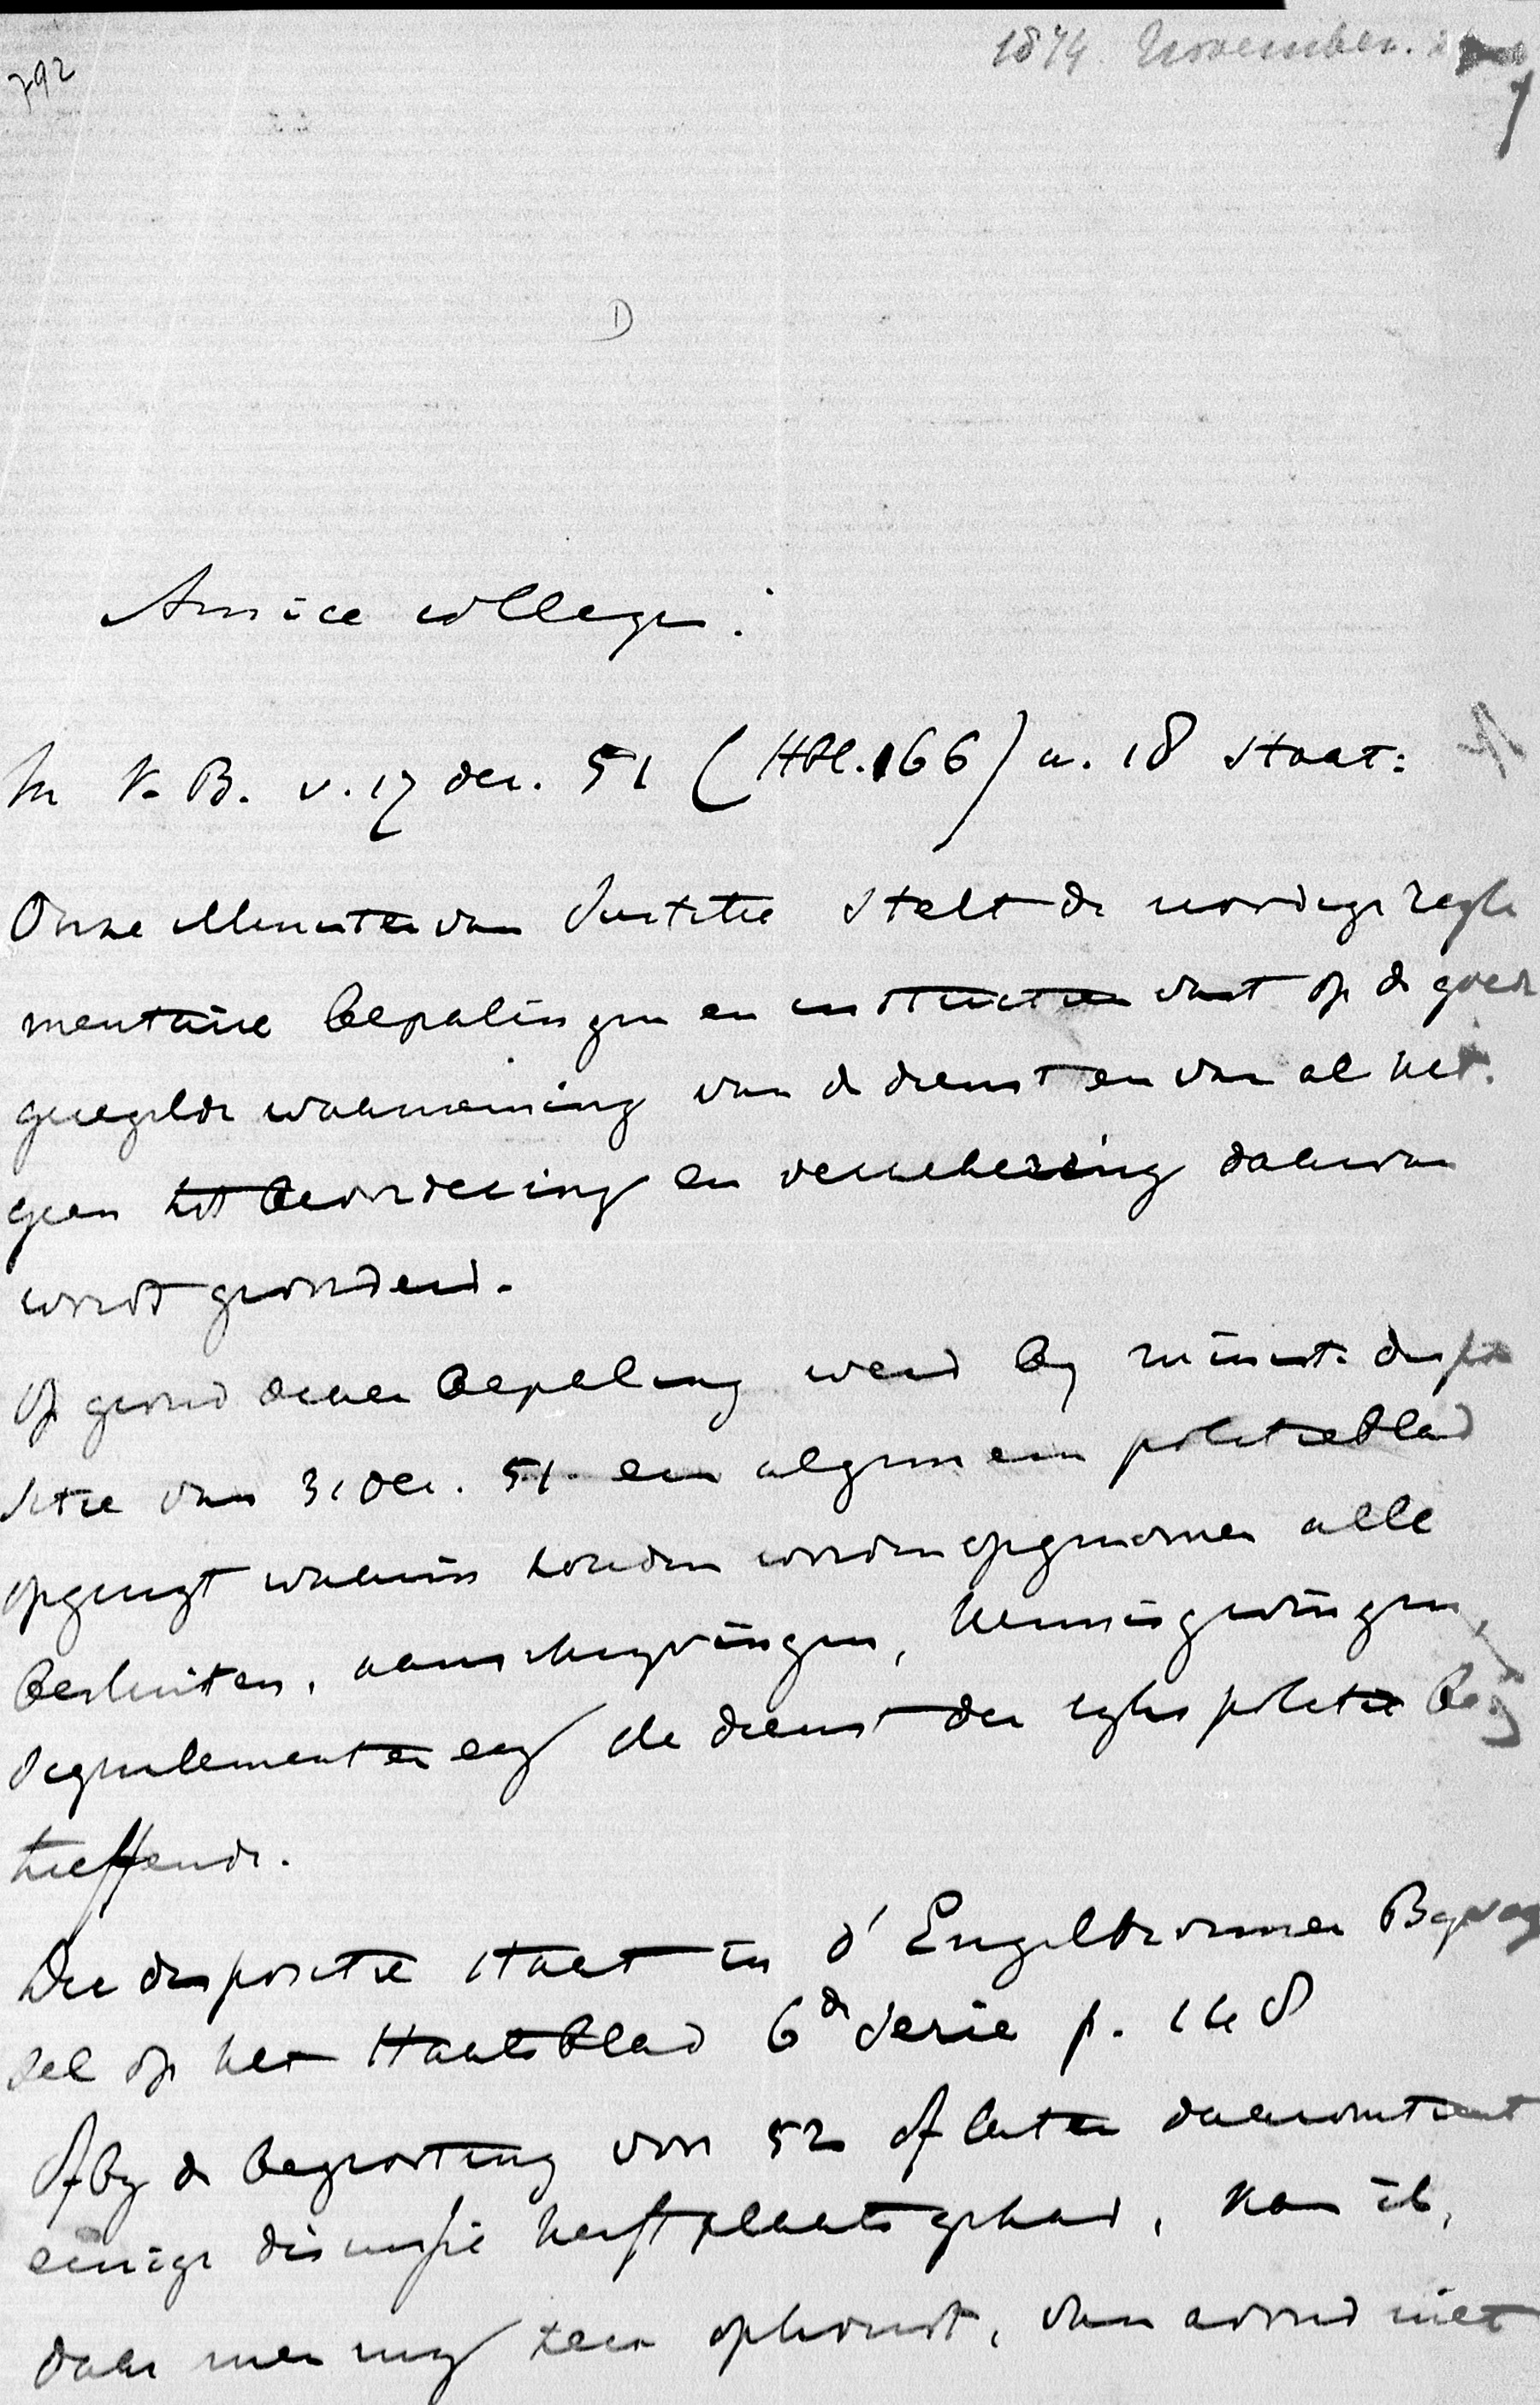 792
1874. November.
D
Amice collega:
In K. B. v. 17 dec. 51 (Stbl. 166) a. 18 staat:
Onze Minister van Justitie stelt de noodige regle
mentaire bepalingen en instructien vast op de goede
geregelde waarneming van de dienst en van al het
geen tot bevordering en verzekering daarvan
wordt gevorderd.
Op grond dezer bepaling werd by minist. dispo
sitie van 31 Dec. 51. een algemeen politieblad
opgerigt waarin zouden worden opgenomen alle
besluiten, aanschryvingen, kennisgevingen,
signalementen enz de dienst der ryks politie be
treffende.
Die dispositie staat in d'Engelbronner Byvoeg
sel op het Staatsblad 6de Serie p. 148
Of by de begrooting voor 52 of later daaromtrent
eenige discussie heeft plaats gehad, kan ik,
daar men my zeer ophoudt, van avond niet